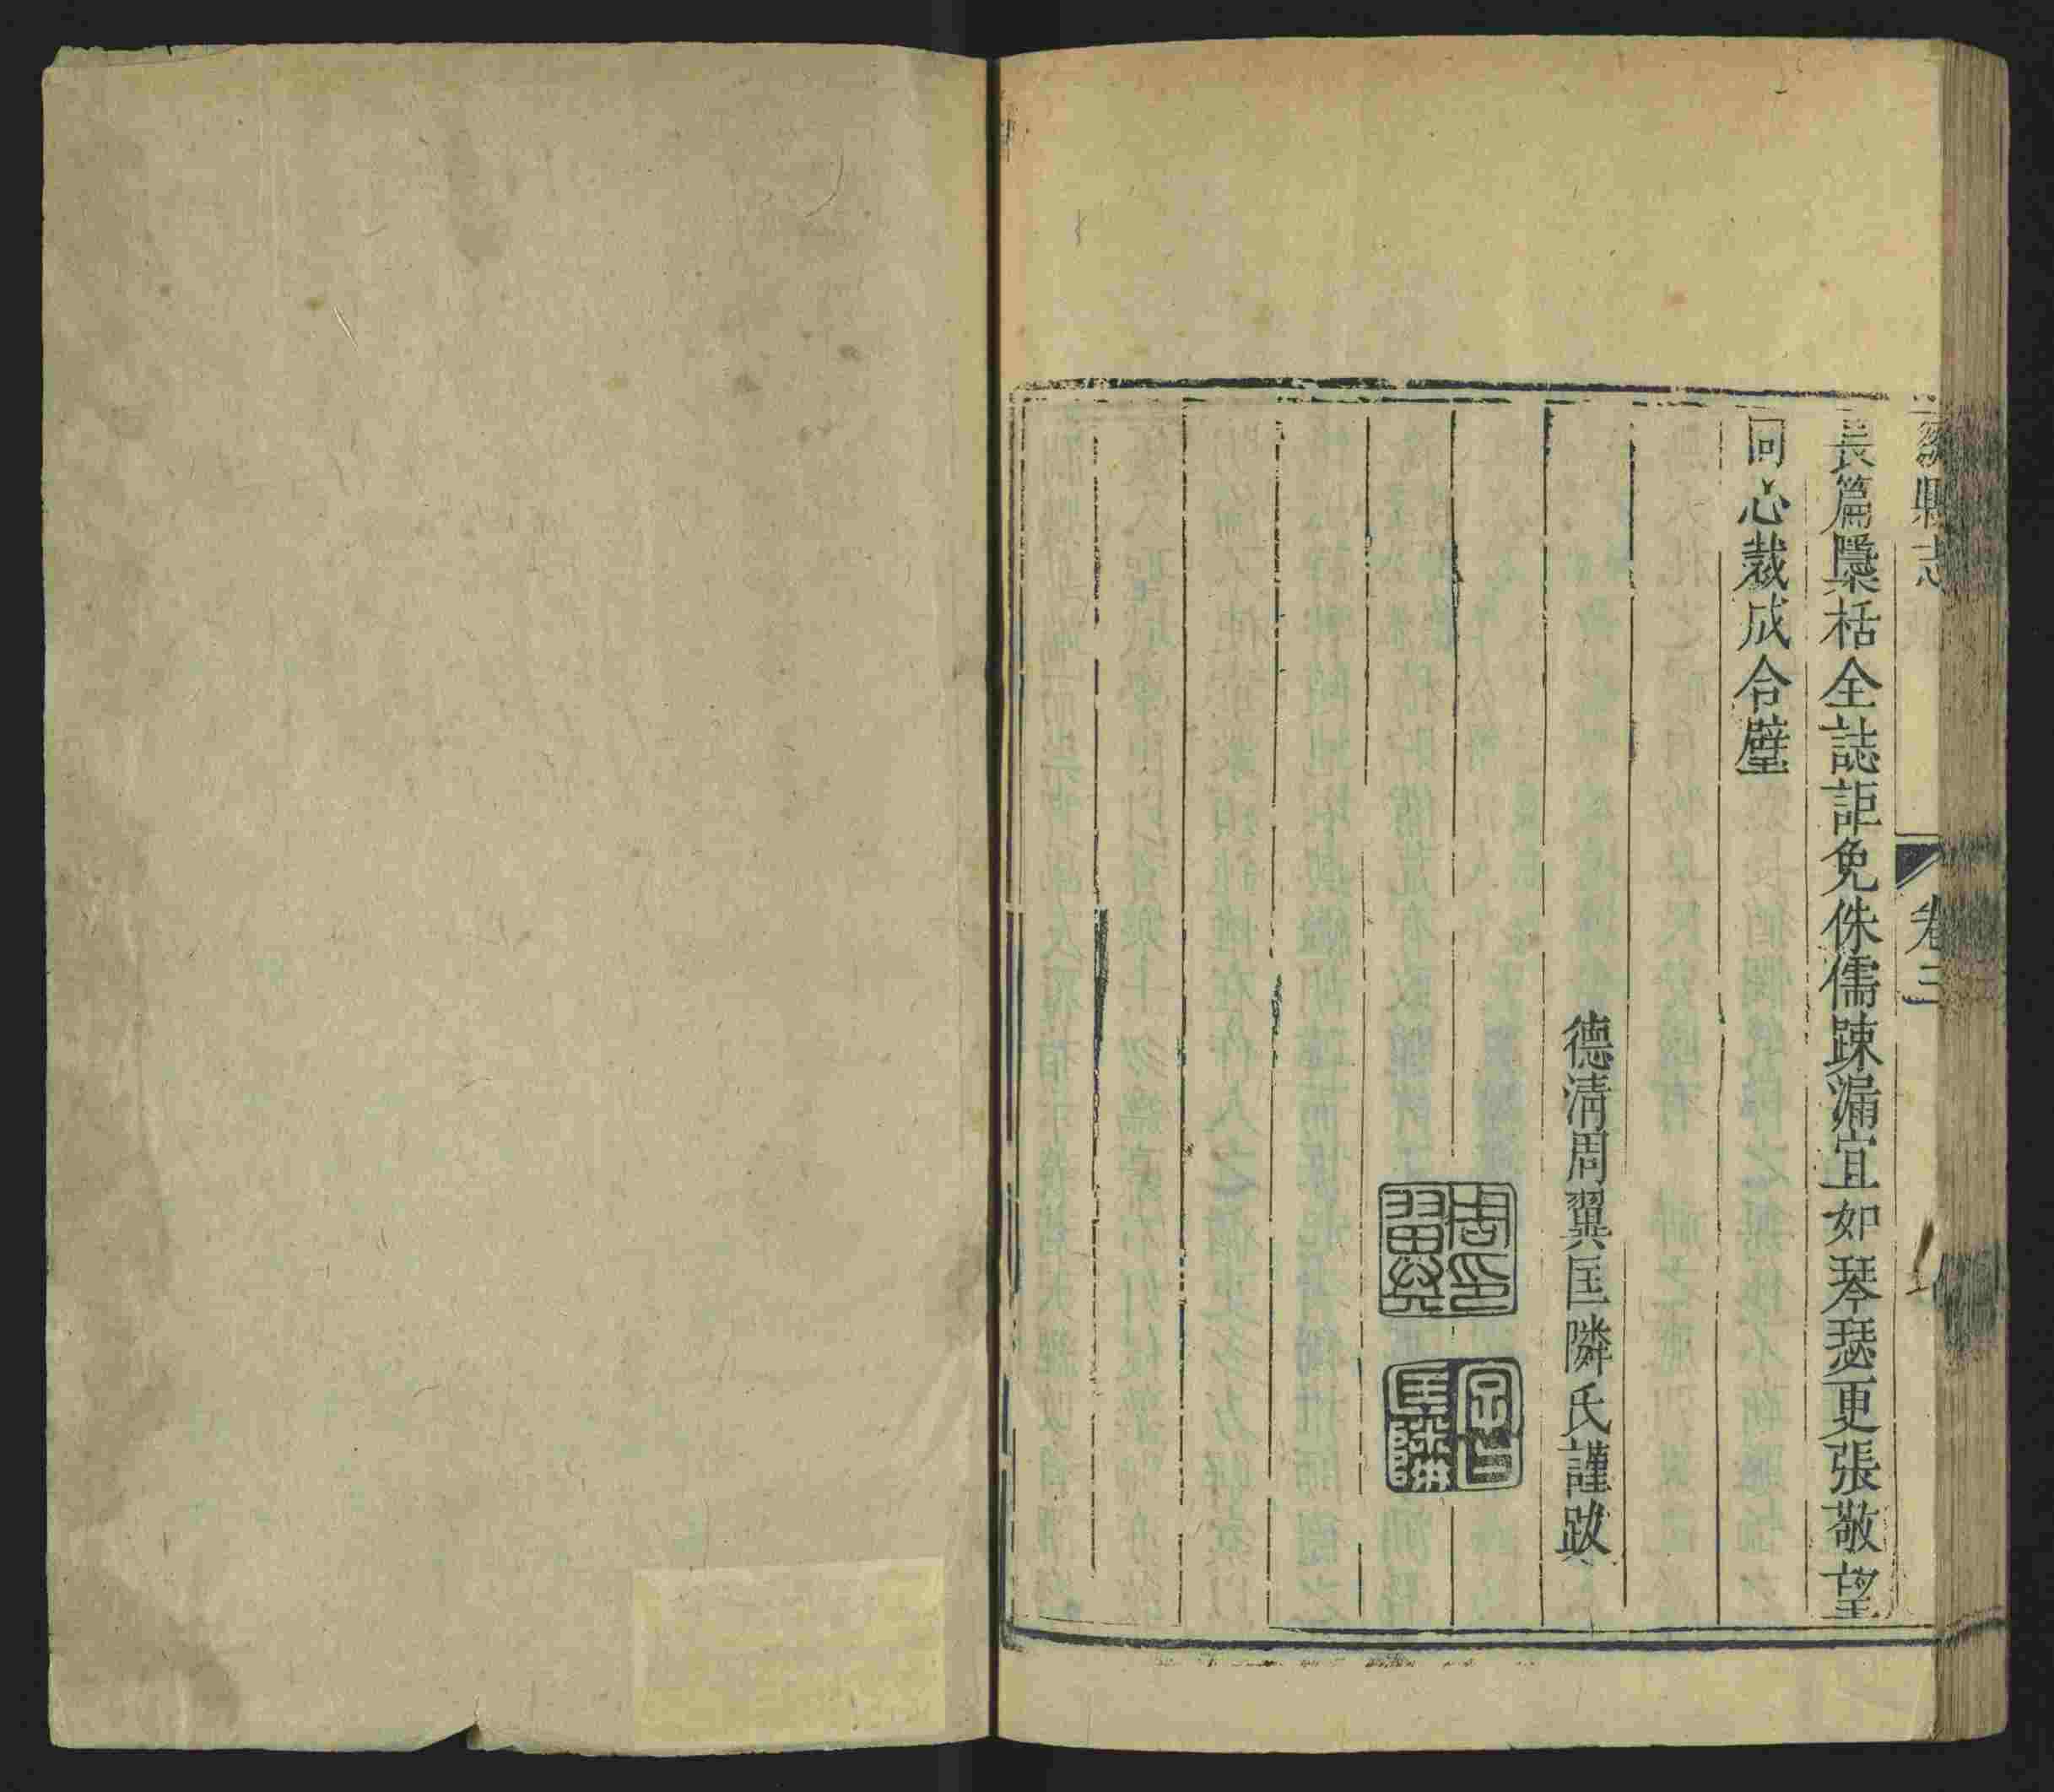 鄒縣志
卷三
長篇隱栝全誌詎免侏儒踈漏宜如琴瑟更張敬望
同心裁成合璧
德淸周翼匡隣氏謹跋
周印
翼
匡隣